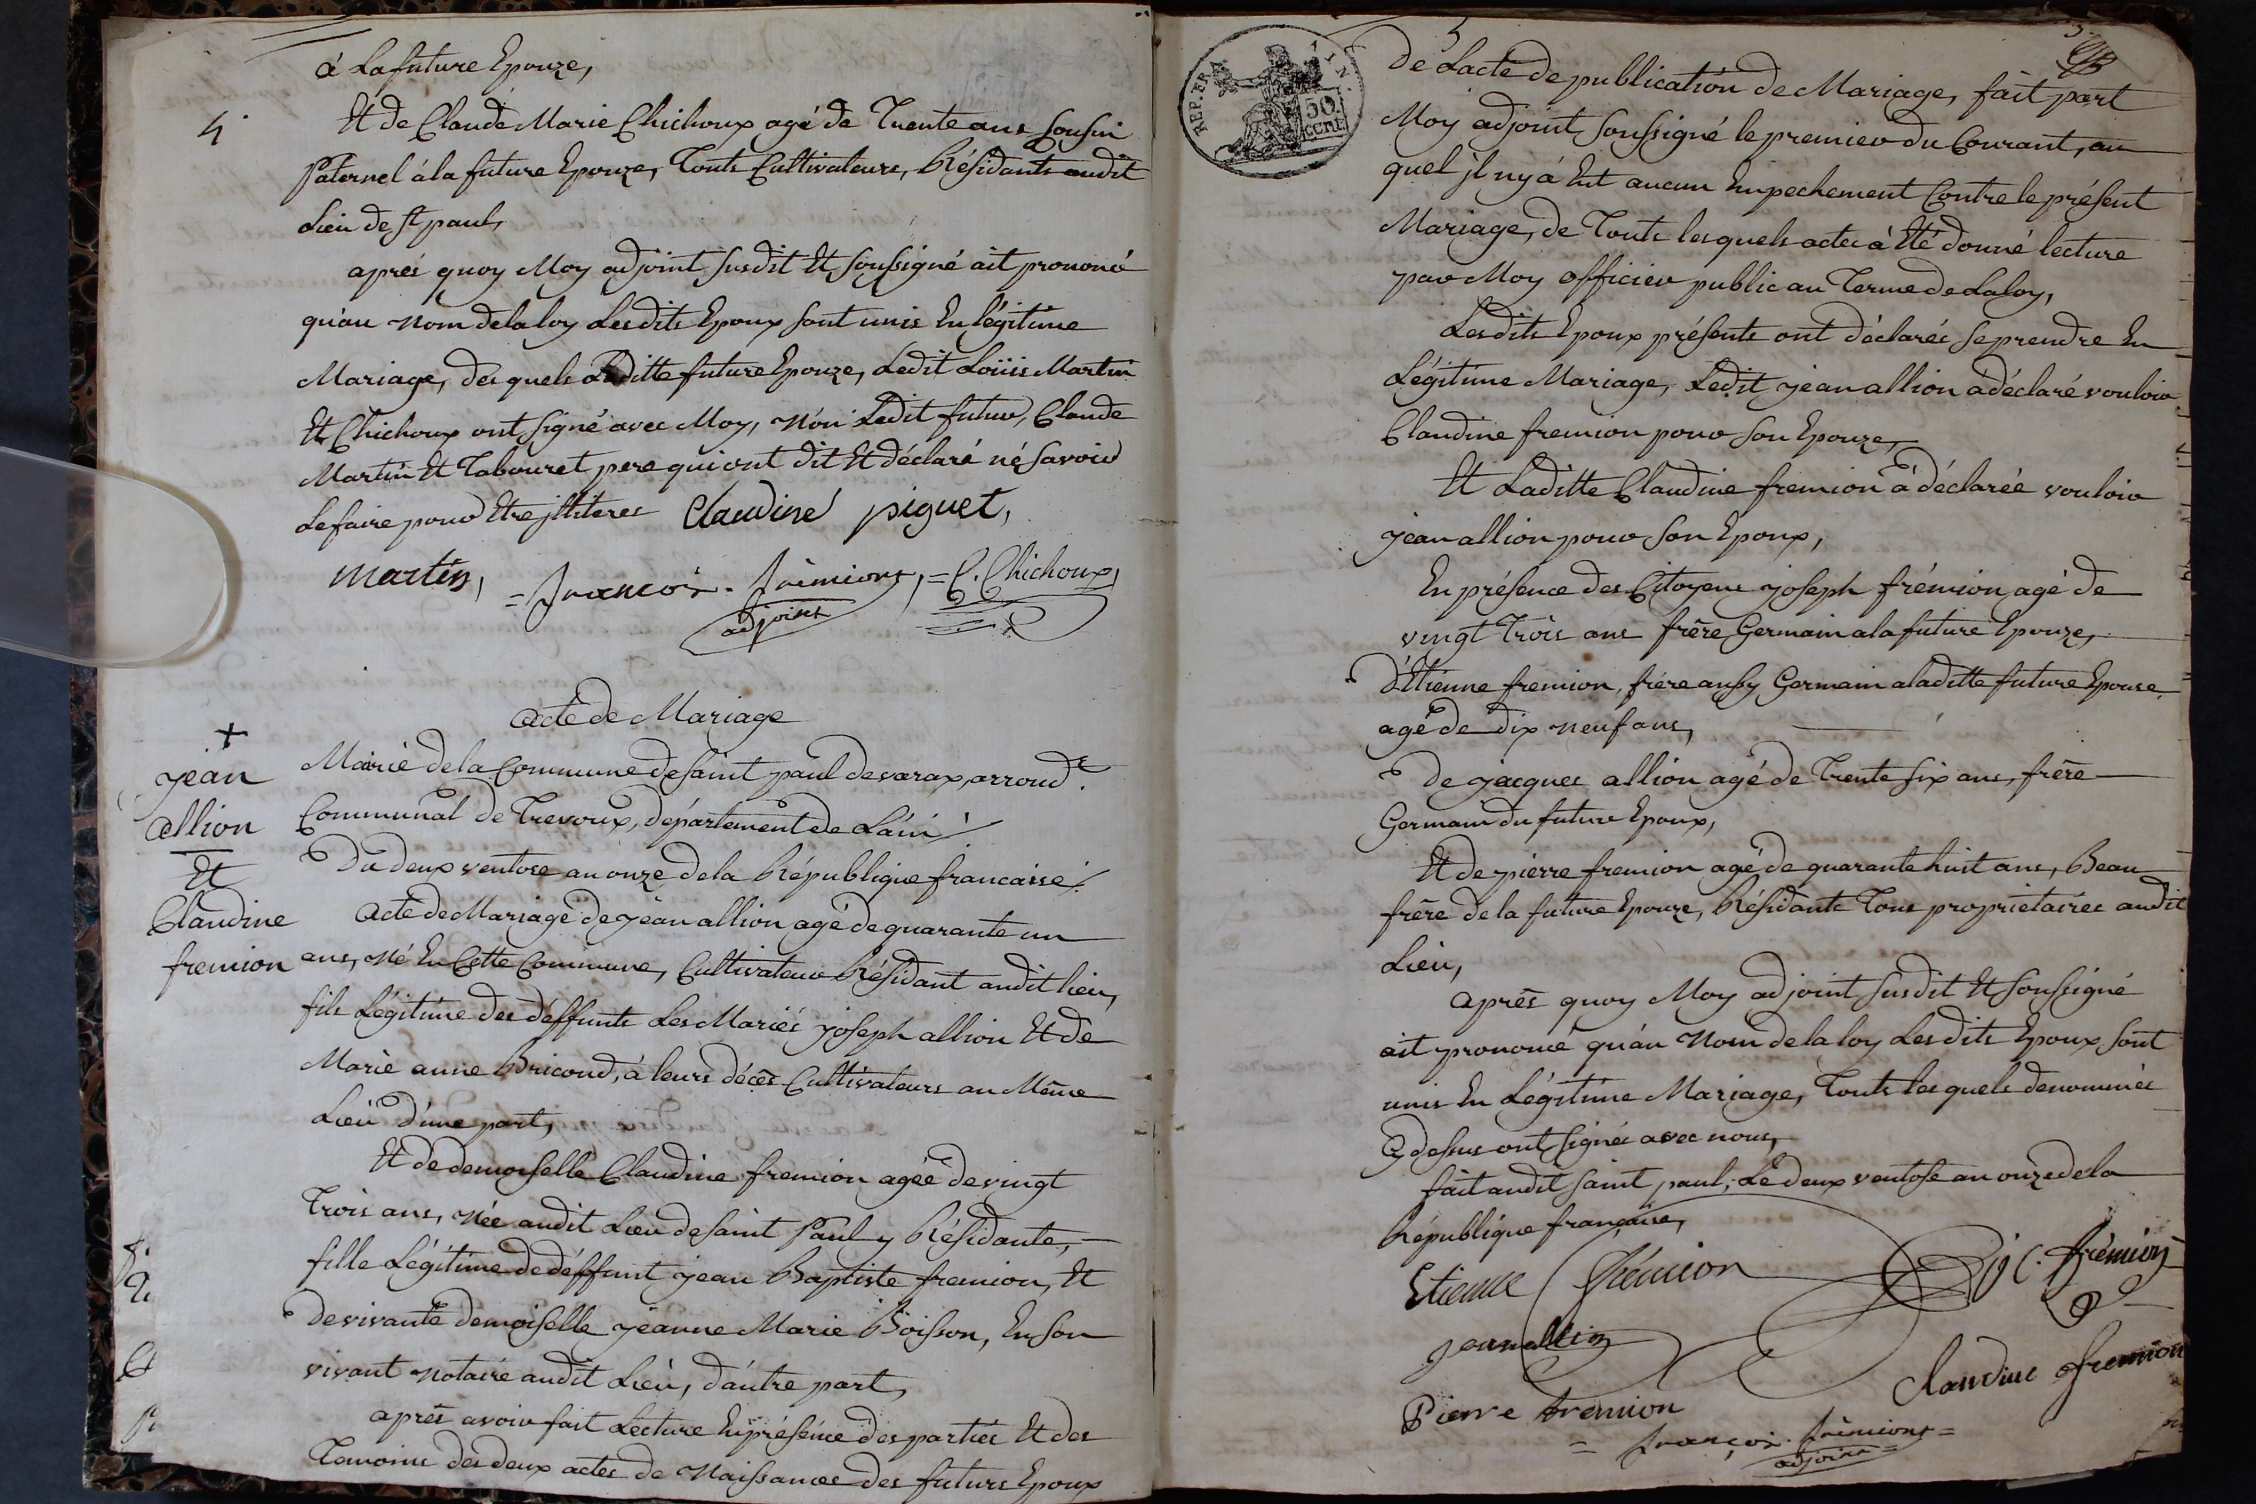 à Lafuture Epouze,
4°
Et de Claude Marie Chichoux agé de Trente ans Cousin
Paternel à la future Epouze, Touts Cultivateurs, Résidants audit
Lieu de st paul,
aprés quoy Moy adjoint susdit Et soussigné ait prononcé
qu'au Nom dela loy Lesdits Epoux sont unis En légitime
Mariage, des quels Laditte future Epouze, Ledit Loüis Martin
Et Chichoux ont signé avec Moy, Non Ledit futur, Claude
Martin Et Tabouret pere qui ont dit Et déclaré né savoir
Le faire pour Etre jlliteres Claudine piguet,
Martin, = françois. frémion, = C. Chichoux,
adjoint
acte de Mariage
+
jean
allion
Et
Claudine
fremion
Mairie dela Commune de saint paul de varax, arrond.t
Communal de Trevoux, département de Lain /
Du deux ventose an onze dela République francaise /.
acte de Mariage de jean allion agé de quarante un
ans, Né En Cette Commune, Cultivateur Résidant audit lieu,
fils Légitime des déffunts Les Mariés joseph allion Et de
Marie anne Bricoud, à leurs décès Cultivateurs au Même
Lieu d'une part,
Et de demoiselle Claudine fremion agée de vingt
Trois ans, Née audit Lieu de saint Paul y Résidante,
fille Légitime de déffunt jean Baptiste fremion, Et
de vivante demoiselle jeanne Marie Boisson, En son
vivant Notaire audit Lieu, d'autre part,
après avoir fait Lecture En présence des parties Et des
Temoins des deux actes de Naissances des futurs Epoux
REP. FRA.
50
cent
5
De Lacte de publication de Mariage, fait part
Moy adjoint soussigné le premier du Courant, au
quel jl ny à Eut aucun Empechement Contre le présent
Mariage, de Touts lesquels actes à Eté donné lecture
par Moy officier public au Terme de Laloy,
Lesdits Epoux présents ont déclarés se prendre En
Légitime Mariage, Ledit jean allion à déclaré vouloir
Claudine fremion pour son Epouze,
Et Laditte Claudine fremion à déclarée vouloir
jean allion pour son Epoux,
En présence des Citoyens joseph frémion agé de
vingt Trois ans frère Germain a la future Epouze,
D'Etienne fremion, frére aussy Germain a laditte future Epouse
agé de dix neuf ans,
De jacques allion agé de Trente six ans, frère
Germain du future Epoux,
Et de pierre fremion agé de quarante huit ans, Beau
frère de la future Epouze, Résidants Tous propriétaires audit
Lieu,
après quoy Moy adjoint susdit Et soussigné
ait prononcé qu'au Nom de la loy Lesdits Epoux sont
unis En Légitime Mariage, Touts les quels denommés
Cy dessus ont signés avec nous,
fait audit saint paul, Le deux ventose an onze dela
République française,
Etienne frémion
frémion
jean allion
Claudine fremion
Pierre fremion
= françois. frémion =
adjoint =